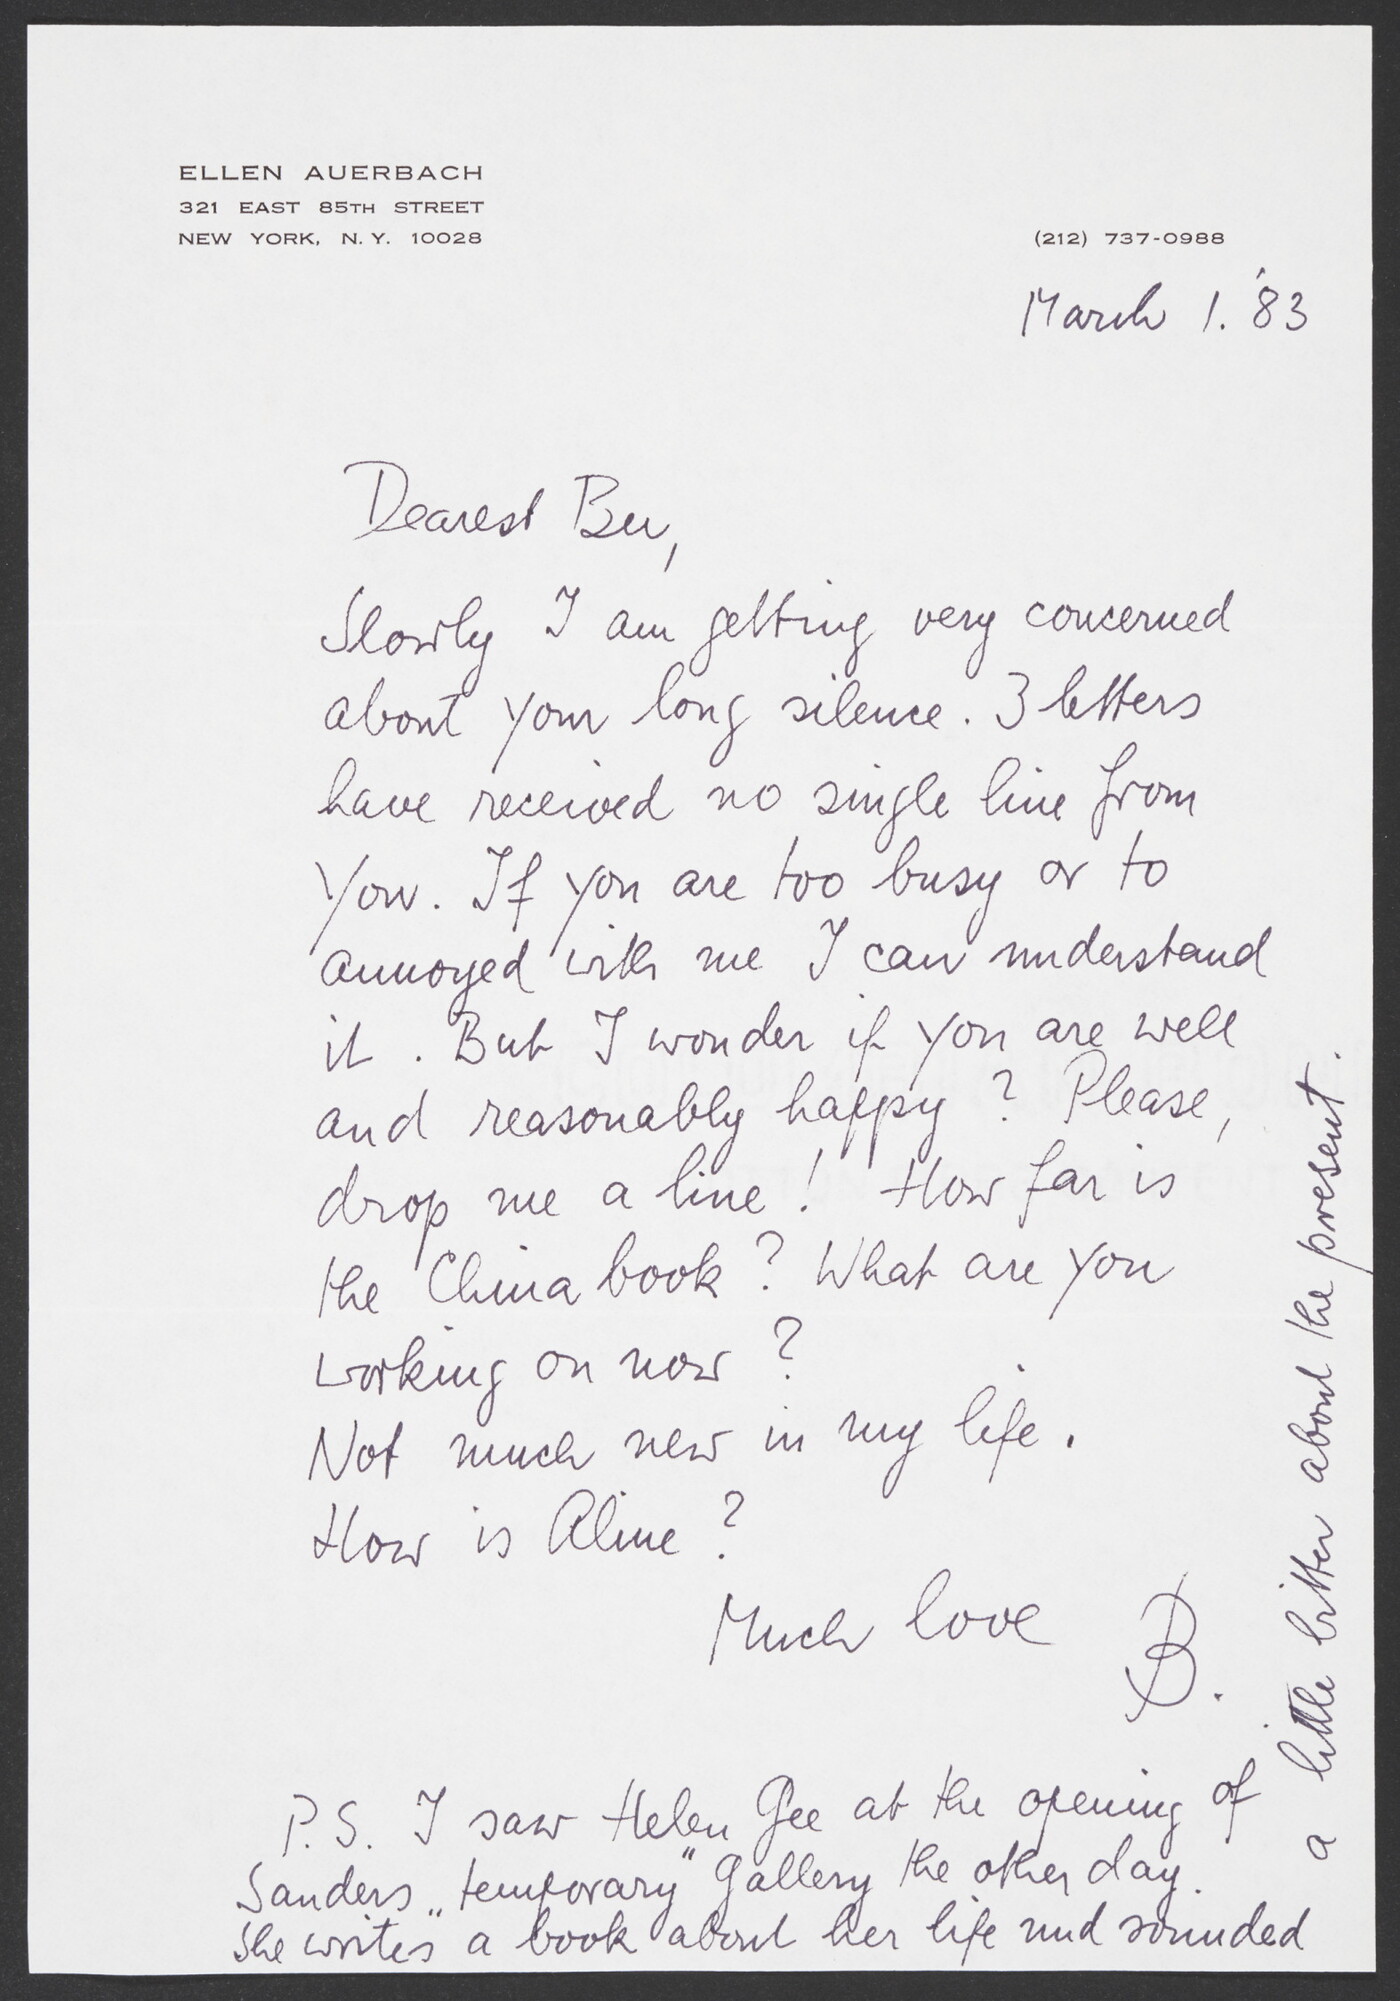 ELLEN AUERBACH
321 EAST 85TH STREET
NEW YORK, N.Y. 10028
(212) 737-0988
March 1. '83
Dearest Ber,
Slowly I am getting very concerned
about your long silence. 3 letters
have received no single line from
You. If you are too busy or to
annoyed with me I can understand
it. But I wonder if you are well
and reasonably happy? Please,
drop me a line! How far is
the China book? What are you
working on now?
Not much new in my life.
How is Aline?
Much love B.
P.S. I saw Helen Gee at the opening of
Sanders „temporary" Gallery the other day.
She writes a book about her life und sounded
a little bitter about the present.